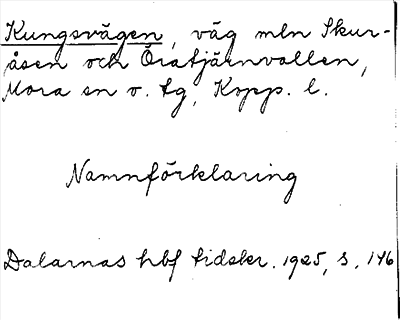 Kungsvägen, väg mln Skur-
åsen och Öratjärnvallen,
Mora sn o. tg, Kopp. l.
Namnförklaring
Dalarnas hbf tidskr. 1925, s. 146